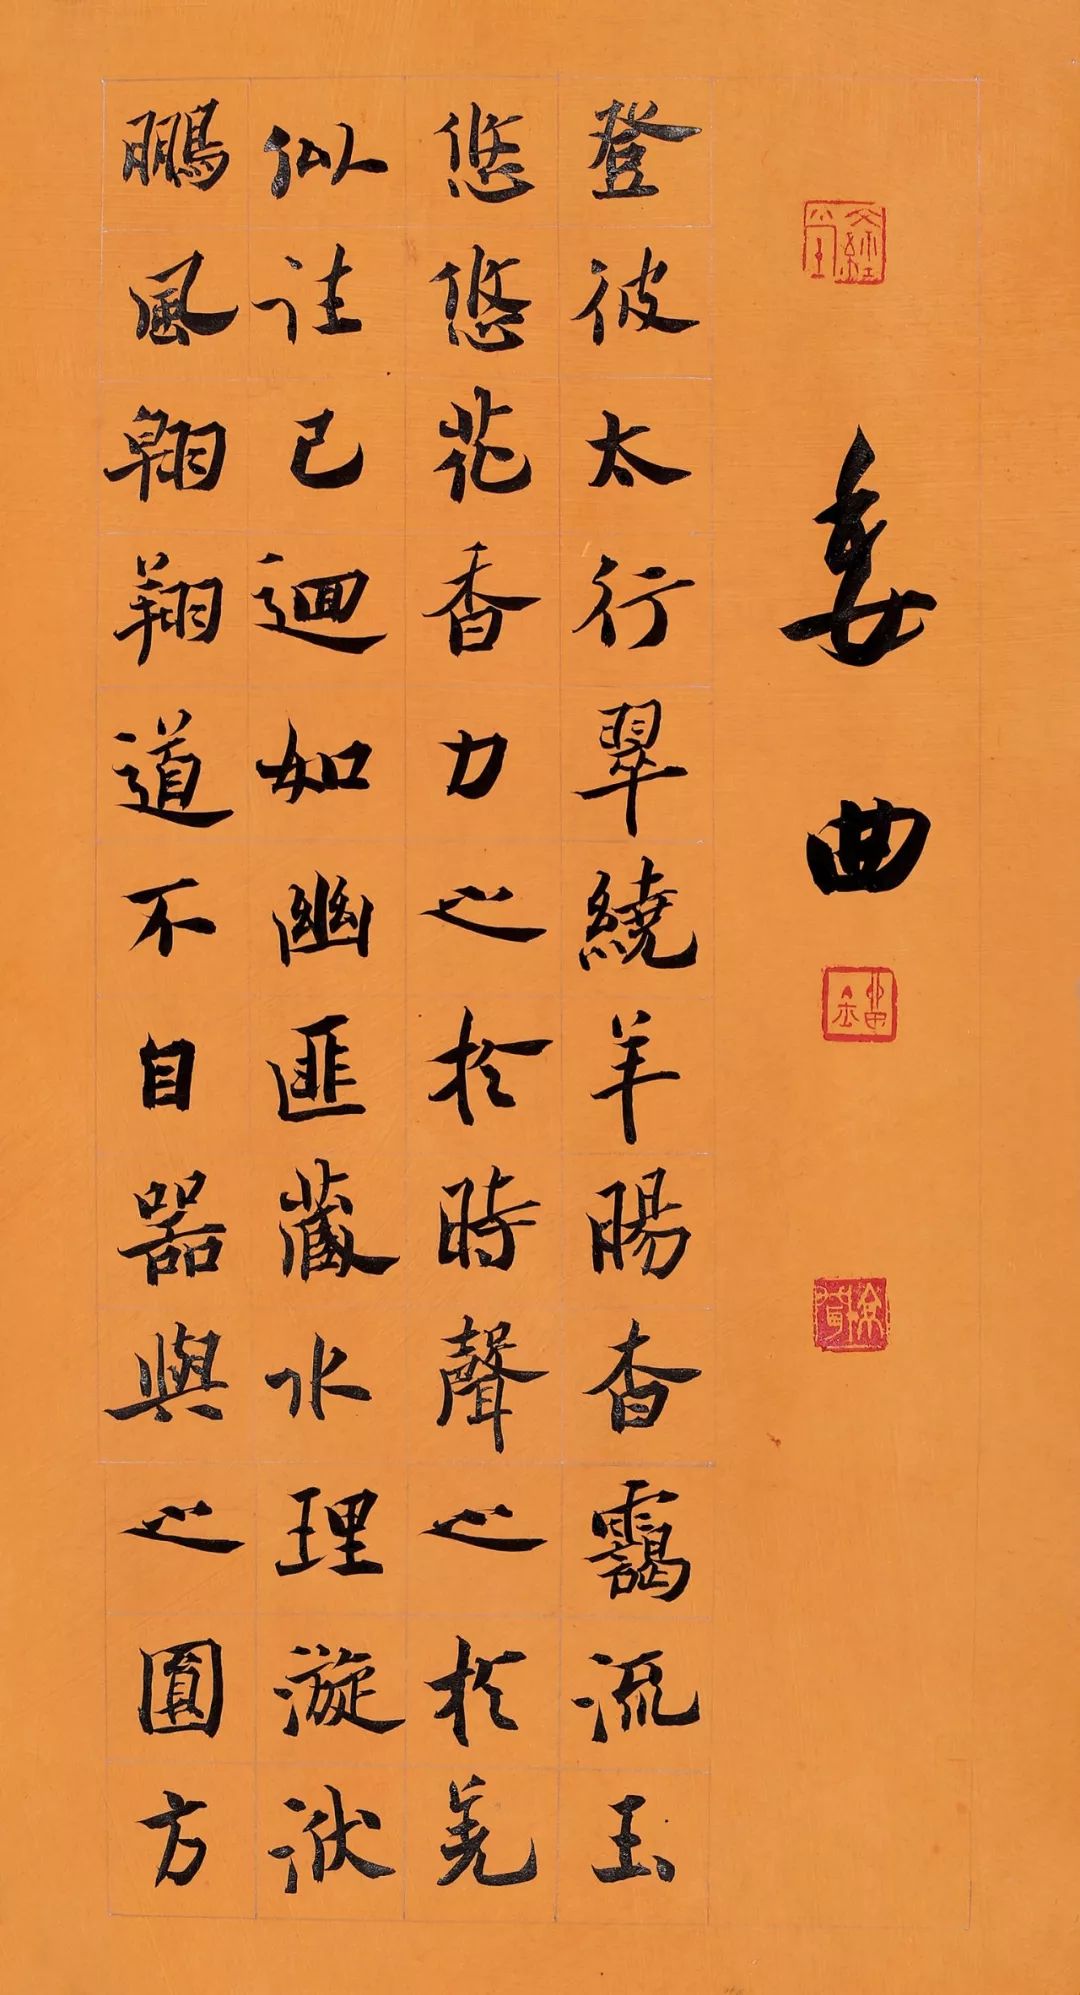 委曲
登彼太行翠繞羊腸杳靄流玉
悠悠花香力之於時聲之於羌
似往已迴如幽匪藏水理漩洑
鵬風翱翔道不自器與之圓方